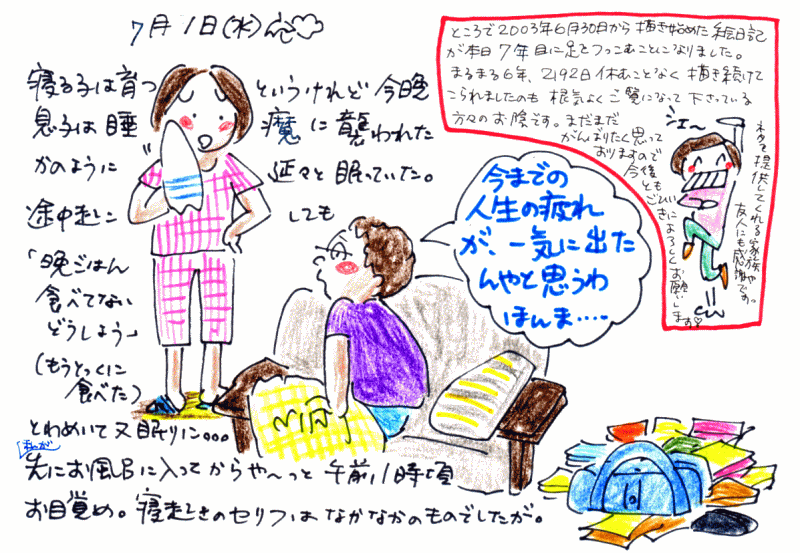 7月1日(水)
寝る子は育つ というけれど 今晩
息子は睡魔に襲われた
かのように 延々と眠っていた。
途中起こしても
「晩ごはん
食べてない
どうしよう」
(もうとっくに
食べた)
とわめいて又眠りに。。。
私が
先にお風呂に入ってからや〜っと 午前11時頃
お目覚め。寝起きのセリフは なかなかのものでしたが。
今までの
人生の疲れ
が、一気に出た
んやと思うわ
ほんま・・・・
ところで2003年6月30日から描き始めた絵日記
が本日7年目に足をつっこむことになりました。
まるまる6年、2192日休むことなく描き続けて
こられましたのも 根気よくご覧になって下さっている
方々のお陰です。まだまだ
がんばりたく思って
おりますので
今後とも
ごひいきによろしくお願いします
ネタを提供してくれる家族や
友人にも感謝です。
シェー